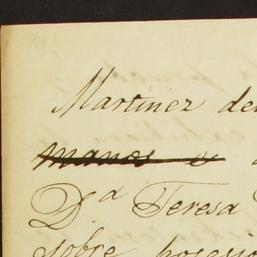 Martinez de
manos
D.ª Teresa
sobre posesio